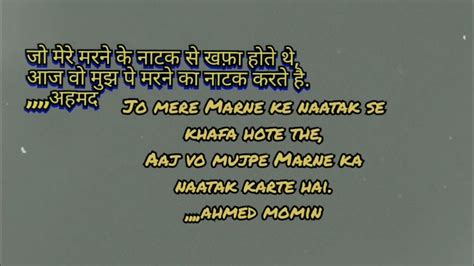 जो मेरे मरने के नाटक से खफ़ा होते थे,
आज वो मुझ पे मरने का नाटक करते है.
,,,,अहमद
Jo mere Marne ke naatak se
khafa hote the,
Aaj vo mujpe Marne ka
naatak karte hai.
,,,,ahmed momin